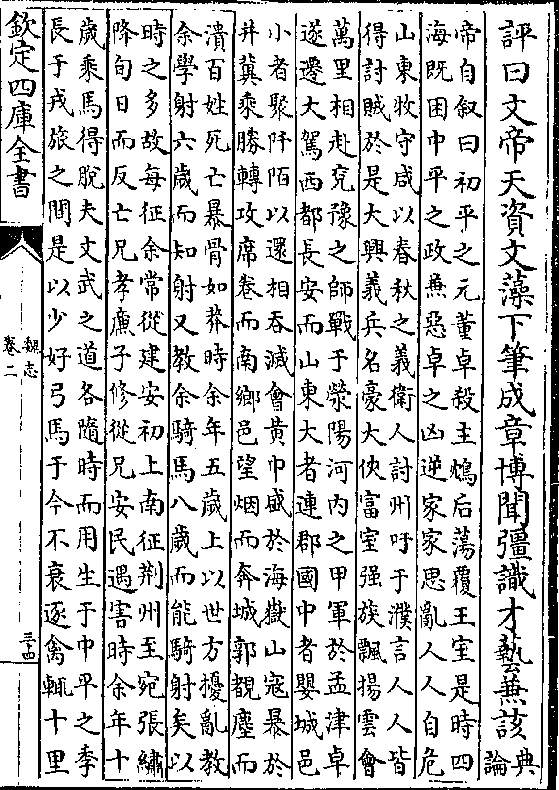 評曰文帝天資文藻下筆成章博聞彊識才藝兼該典論
帝自叙曰初平之元董卓殺主鴆后蕩覆王室是時四
海既困中平之政兼惡卓之凶逆家家思亂人人自危
山東牧守咸以春秋之義衛人討州吁于濮言人人皆
得討賊於是大興義兵名豪大俠富室强族飄揚雲會
萬里相赴兖豫之師戰于滎陽河内之甲軍於孟津卓
遂遷大駕西都長安而山東大者連郡國中者嬰城邑
小者聚阡陌以還相吞滅會黄巾盛於海嶽山寇暴於
并冀乘勝轉攻席卷而南鄉邑望烟而奔城郭覩塵而
潰百姓死亡暴骨如莽時余年五歲上以世方擾亂教
余學射六歲而知射又教余騎馬八歲而能騎射矣以
時之多故每征余常從建安初上南征荆州至宛張繡
降旬日而反亡兄孝廉子修從兄安民遇害時余年十
歲乘馬得脱夫文武之道各隨時而用生于中平之季
長于戎旅之間是以少好弓馬于今不衰逐禽輒十里
欽定四庫全書
魏志
卷二
三十四